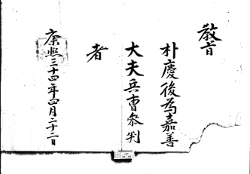 教旨
朴慶後爲嘉善
大夫兵曹參判
者
康熙三十四年四月二十二日